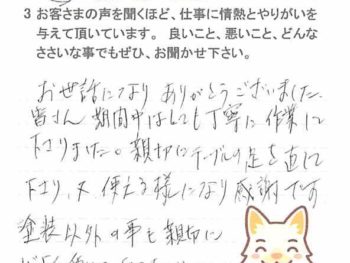 3 お客さまの声を聞くほど、仕事に情熱とやりがいを
与えて頂いています。 良いこと、悪いこと、どんな
ささいな事でもぜひ、お聞かせ下さい。
お世話になり ありがとうございました。
皆さん 期間中はとても丁寧に作業して
下さりました。親切にテーブルの足を直して
下さり、又 使える様になり感謝です
塗装以外の事も親切に